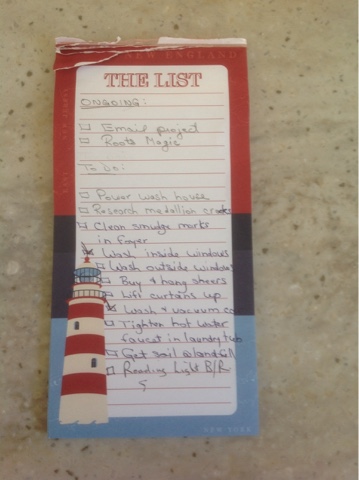 NEW ENGLAND
THE LIST
ONGOING:
Email project
Roots Magic
To Do:
Power wash house
Research medallion
Clean smudge marks
in foyer
Wash inside windows
Wash outside windows
Buy & hang sheers
Lift curtains up
Wash & vacuum
Tighten hot water
faucet in laundry tub
Get soil @ landfill
Reading Light B/R
NEW YORK